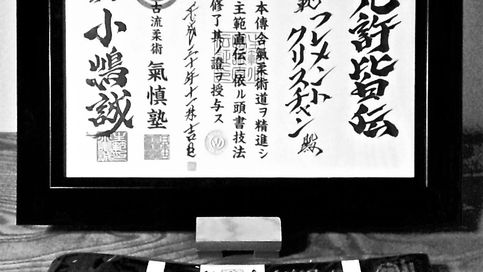 免許皆伝
範
フレメント
クリスチャン殿
本傳合氣柔術道ヲ精進シ
主範直伝ニ依ル頭書技法
修了其ノ證ヲ授与ス
平成二十年十一月吉日
古流柔術 氣慎塾
小嶋誠